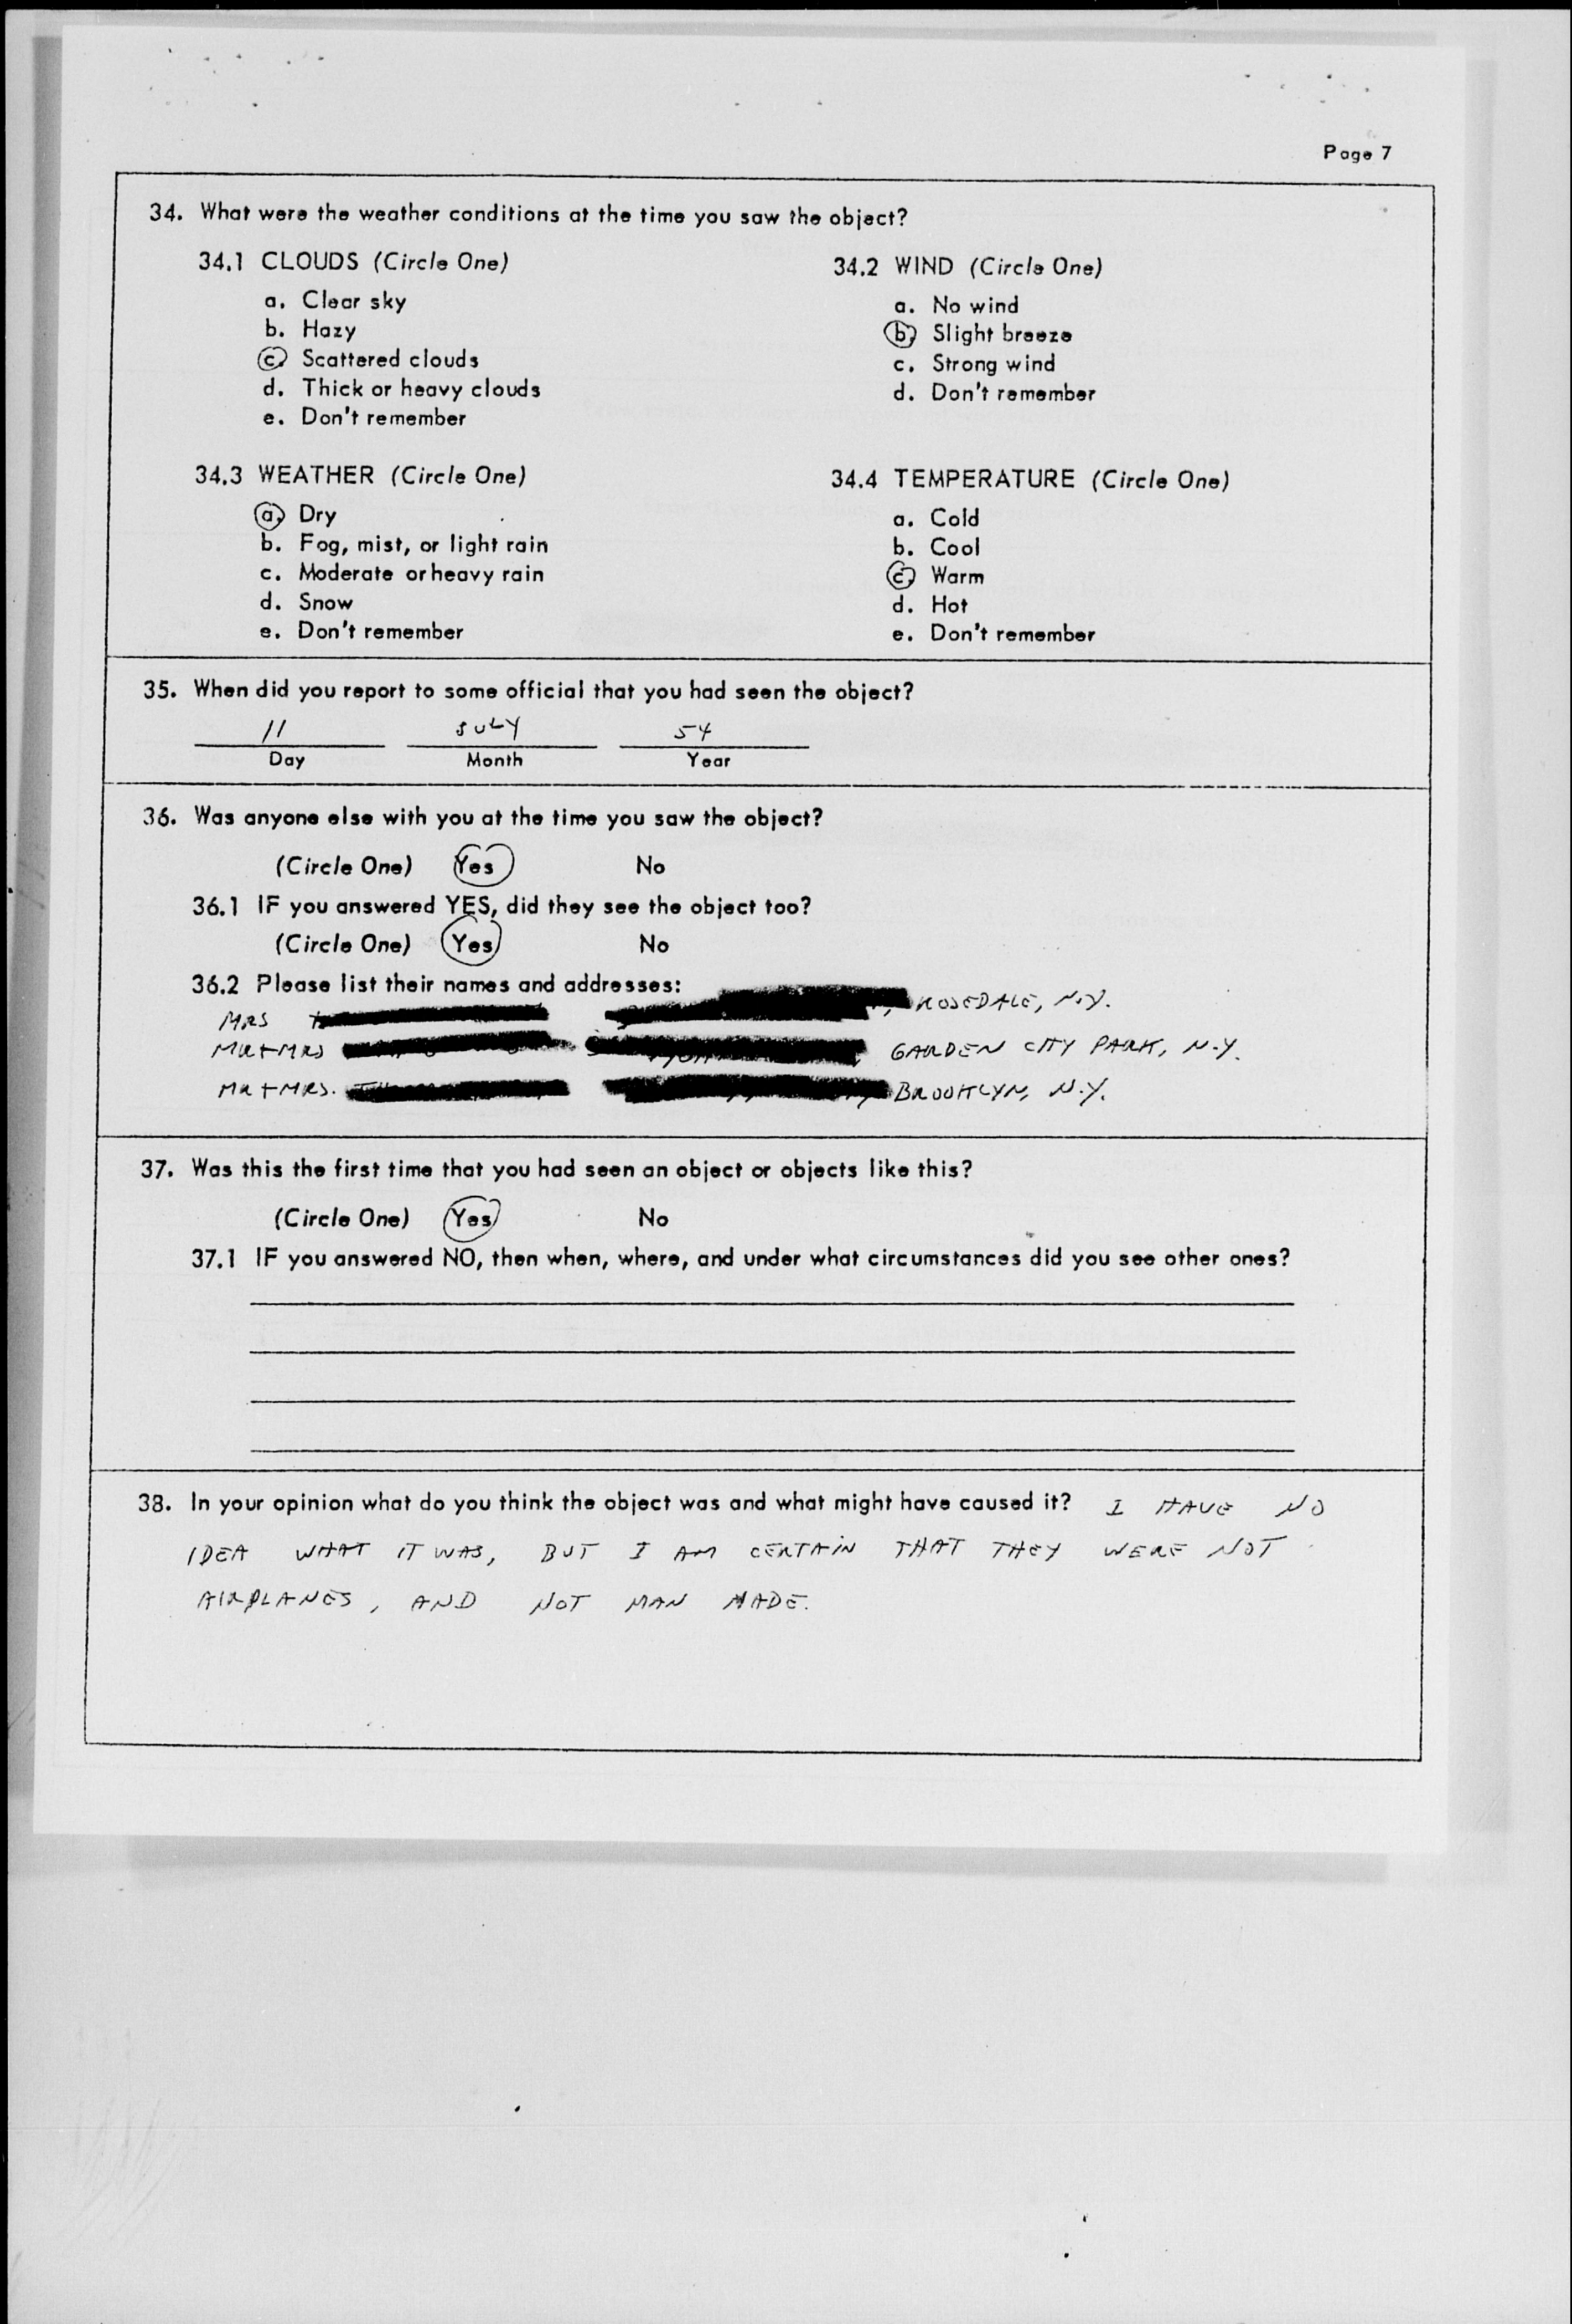 Page 7
34. What were the weather conditions at the time you saw the object?
34.1 CLOUDS (Circle One)
a. Clear sky
b. Hazy
c. Scattered clouds
d. Thick or heavy clouds
e. Don't remember
34.2 WIND (Circle One)
a. No wind
b. Slight breeze
c. Strong wind
d. Don't remember
34.3 WEATHER (Circle One)
a. Dry
b. Fog, mist, or light rain
c. Moderate or heavy rain
d. Snow
e. Don't remember
34.4 TEMPERATURE (Circle One)
a. Cold
b. Cool
c. Warm
d. Hot
e. Don't remember
35. When did you report to some official that you had seen the object?
11 JULY 54
Day Month Year
36. Was anyone else with you at the time you saw the object?
(Circle One) Yes No
36.1 IF you answered YES, did they see the object too?
(Circle One) Yes No
36.2 Please list their names and addresses:
MRS , ROSEDALE, N.Y.
MR + MRS GARDEN CITY PARK, N.Y.
MR + MRS. BROOKLYN, N.Y.
37. Was this the first time that you had seen an object or objects like this?
(Circle One) Yes No
37.1 IF you answered NO, then when, where, and under what circumstances did you see other ones?
38. In your opinion what do you think the object was and what might have caused it? I HAVE NO
IDEA WHAT IT WAS, BUT I AM CERTAIN THAT THEY WERE NOT
AIRPLANES, AND NOT MAN MADE.